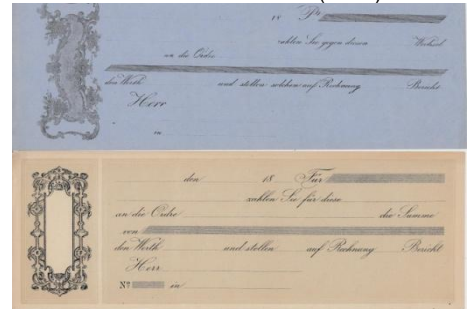 18 Pr
zahlen Sie gegen diesen Wechsel
an die Ordre
den Werth und stellen solchen auf Rechnung Bericht
Herr
in
den 18 Für
zahlen Sie für diese
an die Ordre die Summe
von
den Werth und stellen auf Rechnung Bericht
Herr
No in